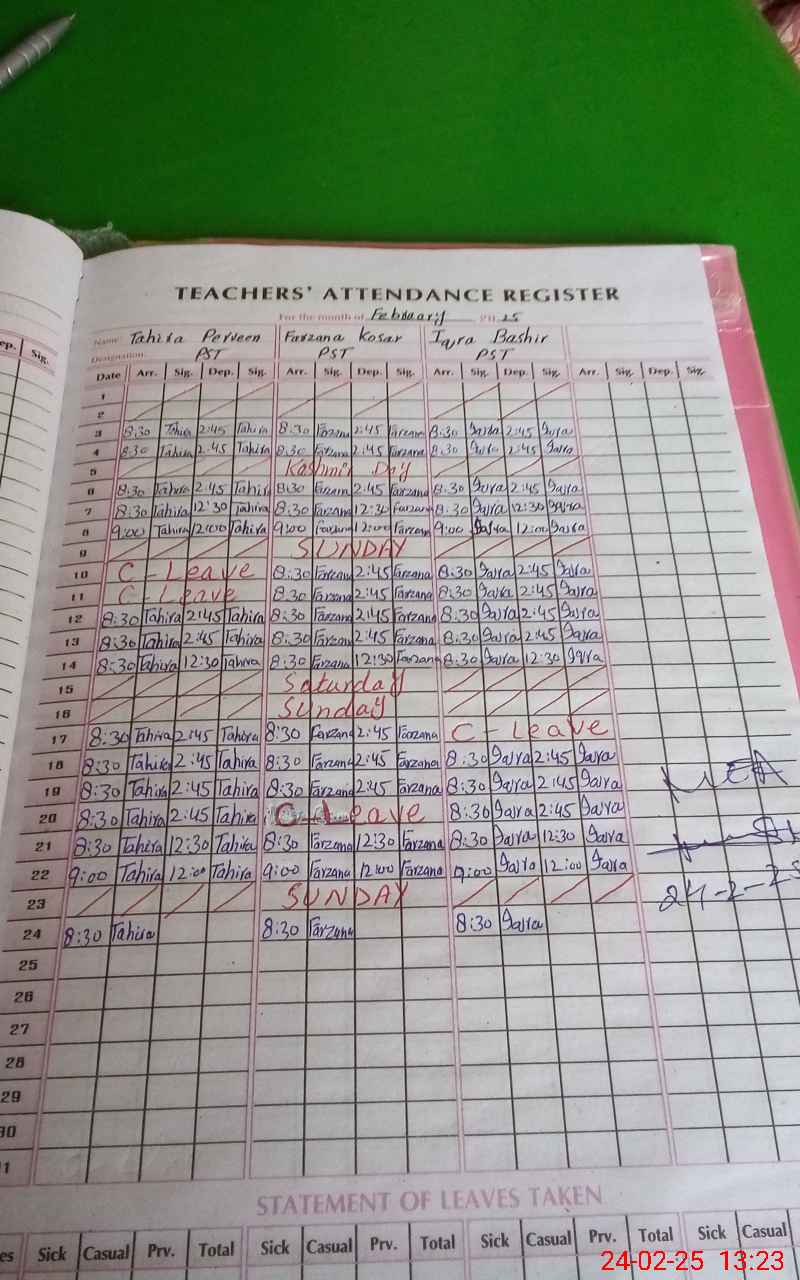 TEACHERS' ATTENDANCE REGISTER
For the month of February 2025
Name Tahira Perveen Farzana Kosar Iqra Bashir
Designation PST PST PST
ep. Sig. Date Arr. Sig. Dep. Sig. Arr. Sig. Dep. Sig. Arr. Sig. Dep. Sig. Arr. Sig. Dep. Sig.
1
2
3 8:30 Tahira 2:45 Tahira 8:30 Farzana 2:45 Farzana 8:30 Iqra 2:45 Iqra
4 8:30 Tahira 2:45 Tahira 8:30 Farzana 2:45 Farzana 8:30 Iqra 2:45 Iqra
5 Kashmir Day
6 8:30 Tahira 2:45 Tahira 8:30 Farzana 2:45 Farzana 8:30 Iqra 2:45 Iqra
7 8:30 Tahira 12:30 Tahira 8:30 Farzana 12:30 Farzana 8:30 Iqra 12:30 Iqra
8 9:00 Tahira 12:00 Tahira 9:00 Farzana 12:00 Farzana 9:00 Iqra 12:00 Iqra
9 SUNDAY
10 C - Leave 8:30 Farzana 2:45 Farzana 8:30 Iqra 2:45 Iqra
11 C - Leave 8:30 Farzana 2:45 Farzana 8:30 Iqra 2:45 Iqra
12 8:30 Tahira 2:45 Tahira 8:30 Farzana 2:45 Farzana 8:30 Iqra 2:45 Iqra
13 8:30 Tahira 2:45 Tahira 8:30 Farzana 2:45 Farzana 8:30 Iqra 2:45 Iqra
14 8:30 Tahira 12:30 Tahira 8:30 Farzana 12:30 Farzana 8:30 Iqra 12:30 Iqra
15 Saturday
16 Sunday
17 8:30 Tahira 2:45 Tahira 8:30 Farzana 2:45 Farzana C - Leave
18 8:30 Tahira 2:45 Tahira 8:30 Farzana 2:45 Farzana 8:30 Iqra 2:45 Iqra
19 8:30 Tahira 2:45 Tahira 8:30 Farzana 2:45 Farzana 8:30 Iqra 2:45 Iqra MEA
20 8:30 Tahira 2:45 Tahira C - Leave 8:30 Iqra 2:45 Iqra
21 8:30 Tahira 12:30 Tahira 8:30 Farzana 12:30 Farzana 8:30 Iqra 12:30 Iqra
22 9:00 Tahira 12:00 Tahira 9:00 Farzana 12:00 Farzana 9:00 Iqra 12:00 Iqra
23 SUNDAY 24-2-25
24 8:30 Tahira 8:30 Farzana 8:30 Iqra
25
26
27
28
29
30
1
STATEMENT OF LEAVES TAKEN
es Sick Casual Prv. Total Sick Casual Prv. Total Sick Casual Prv. Total Sick Casual
24-02-25 13:23